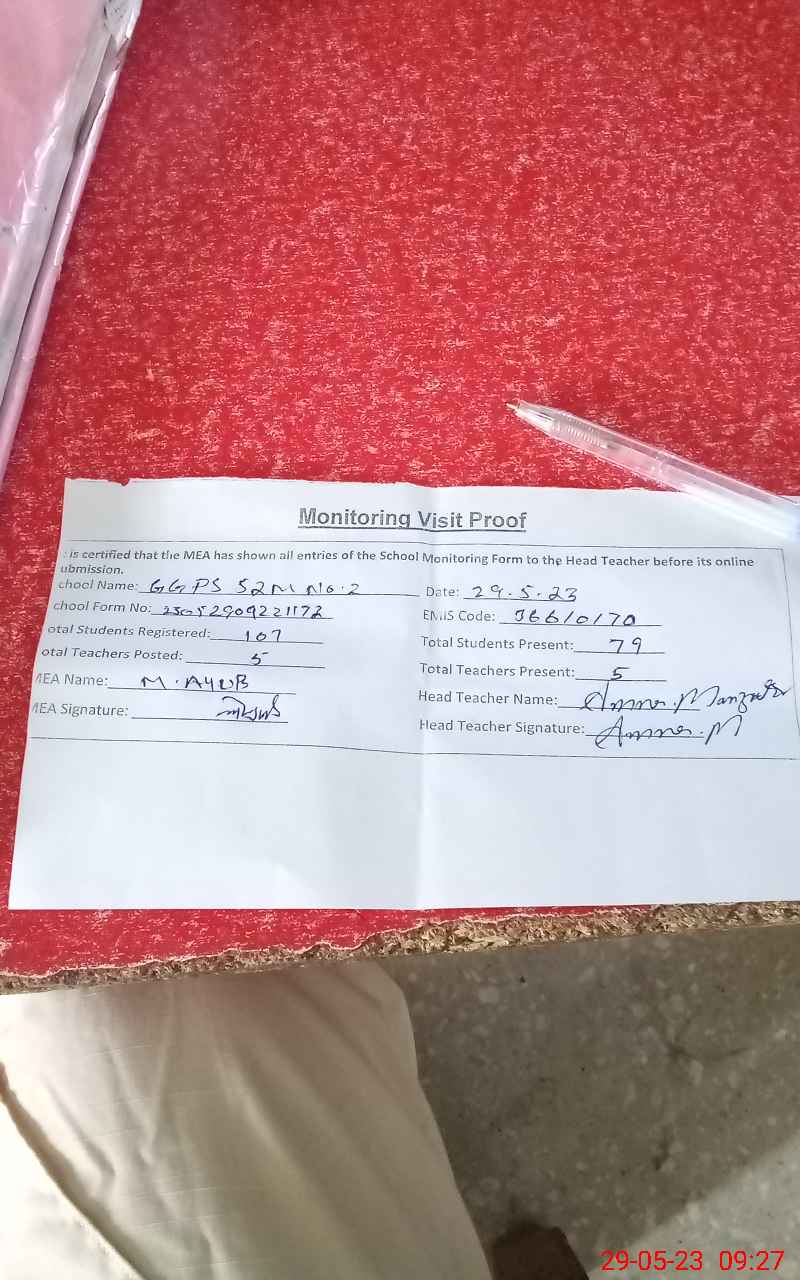 Monitoring Visit Proof
is certified that the MEA has shown all entries of the School Monitoring Form to the Head Teacher before its online
ubmission.
chool Name: GGPS 52M No.2 Date: 29.5.23
chool Form No: EMIS Code: 36610170
otal Students Registered: 107 Total Students Present: 79
otal Teachers Posted: 5 Total Teachers Present: 5
MEA Name: M.AYUB Head Teacher Name:
MEA Signature: Head Teacher Signature:
29-05-23 09:27